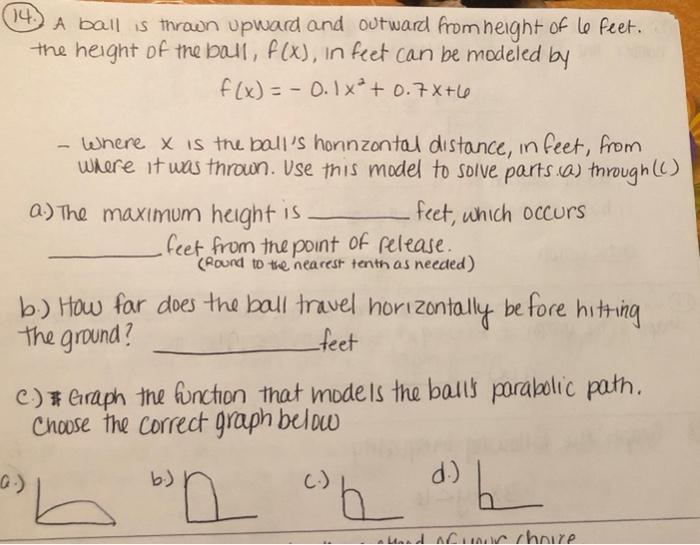 14. A ball is thrown upward and outward from height of 6 feet.
the height of the ball, f(x), in feet can be modeled by
f(x) = - 0.1x² + 0.7x+6
- Where x is the ball's honnzontal distance, in feet, from
where it was thrown. Use this model to solve parts (a) through (c)
a.) The maximum height is ________ feet, which occurs
________ feet from the point of release.
(Round to the nearest tenth as needed)
b.) How far does the ball travel horizontally before hitting
the ground? ________ feet
c.) Graph the function that models the ball's parabolic path.
Choose the correct graph below
a.) b.) c.) d.)
of your choice